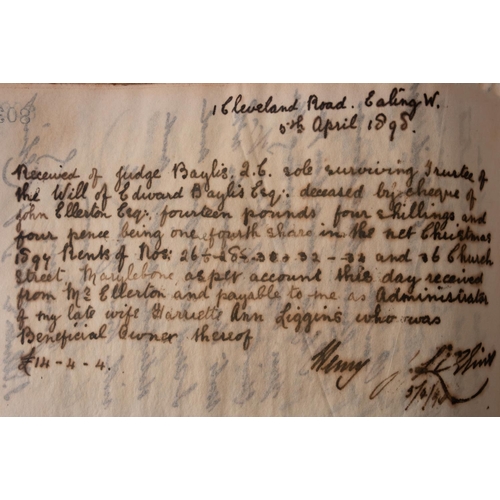 1 Cleveland Road. Ealing W.
5th April 1898.
Received of Judge Baylis. Q.C. sole surviving Trustee of
the Will of Edward Baylis Esq: deceased by cheque of
John Ellerton Esq: fourteen pounds four shillings and
four pence being one fourth share in the net Christmas
1897 Rents of Nos: 26 - 28 - 30 - 32 - 34 and 36 Church
Street, Marylebone as per account this day received
from Mr Ellerton and payable to me as Administrator
of my late wife Harriette Ann Liggins who was
Beneficial Owner thereof
£14-4-4.
Henry J.